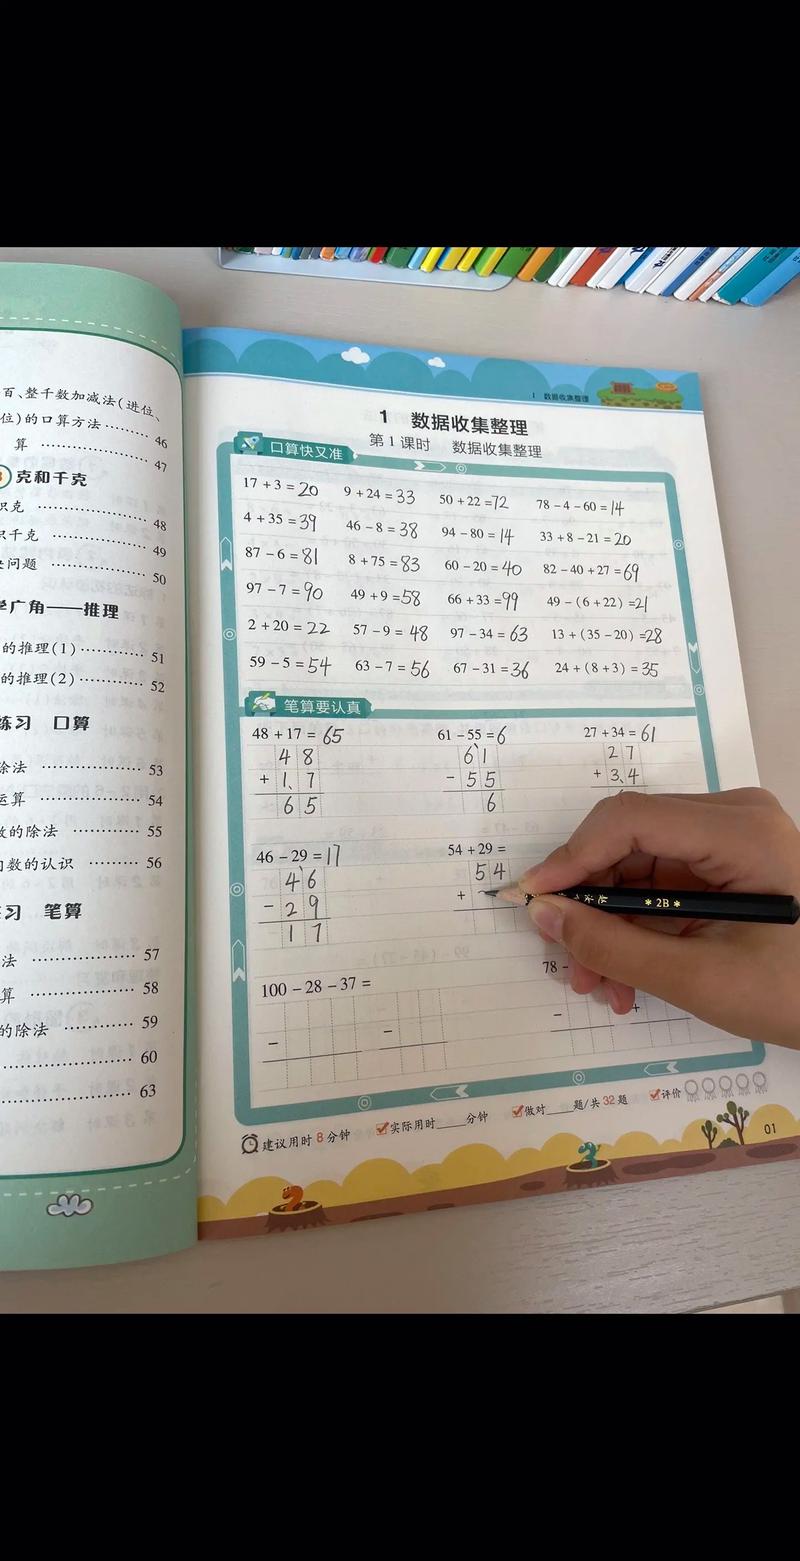 百、整千数加减法(进位、
位)的口算方法……… 46
算 ……………… 47
克和千克
识克 ……………… 48
识千克 …………… 49
问题 ……………… 50
广角——推理
的推理(1)………… 51
的推理(2)………… 52
练习 口算
除法 ……………… 53
运算 ……………… 54
数的除法 ………… 55
数的认识 ……… 56
习 笔算
法 ……………… 57
算 ……………… 58
的除法 ………… 59
……………… 60
……………… 63
1 数据收集整理
1 数据收集整理
第1课时 数据收集整理
口算快又准
17+3=20 9+24=33 50+22=72 78-4-60=14
4+35=39 46-8=38 94-80=14 33+8-21=20
87-6=81 8+75=83 60-20=40 82-40+27=69
97-7=90 49+9=58 66+33=99 49-(6+22)=21
2+20=22 57-9=48 97-34=63 13+(35-20)=28
59-5=54 63-7=56 67-31=36 24+(8+3)=35
笔算要认真
48+17=65 61-55=6 27+34=61
48 61 27
+17 -55 +34
65 6
46-29=17 54+29=
46 54
-29 +
17
100-28-37= 78-
- - - +
建议用时8分钟 实际用时____分钟 做对____题/共32题 评价
01
*2B*